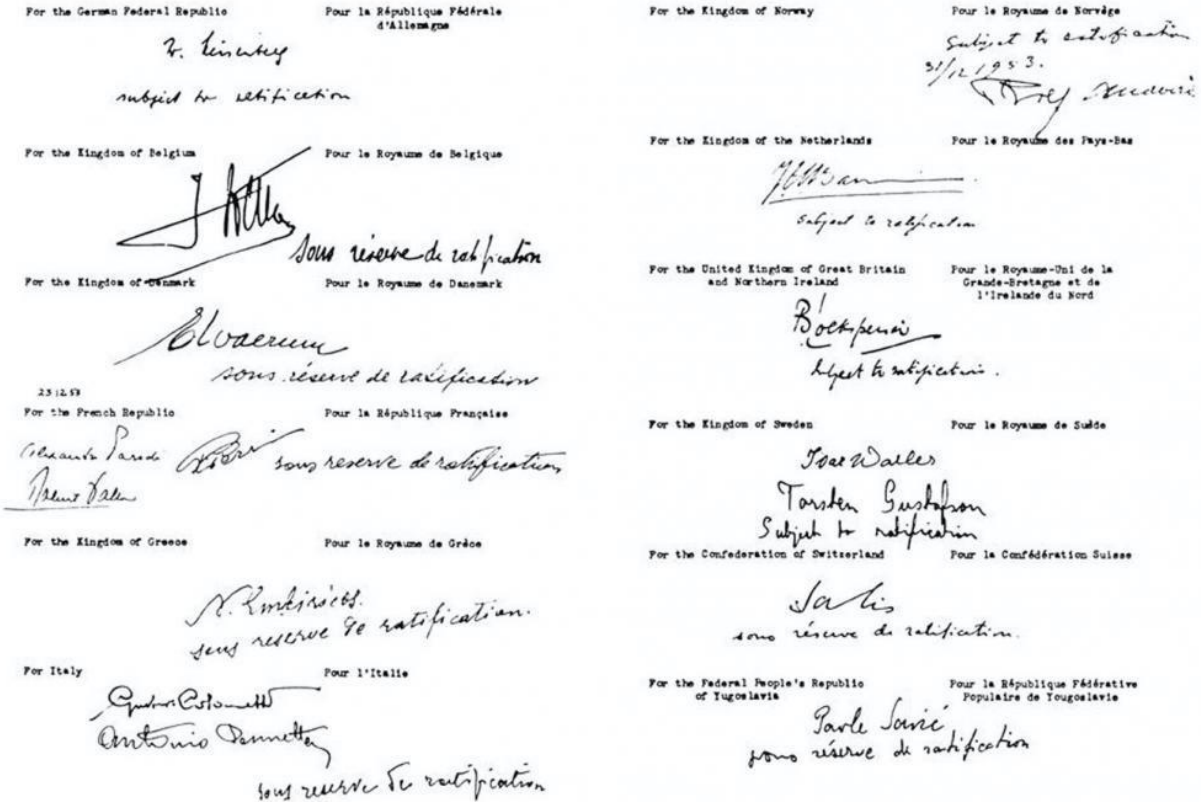 For the German Federal Republic
Pour la République Fédérale
d'Allemagne
subject to ratification
For the Kingdom of Belgium
Pour le Royaume de Belgique
sous réserve de ratification
For the Kingdom of Denmark
Pour le Royaume de Danemark
sous réserve de ratification
23 12 53
For the French Republic
Pour la République Française
sous reserve de ratification
For the Kingdom of Greece
Pour le Royaume de Grèce
sous reserve de ratification.
For Italy
Pour l'Italie
Antonio Pennetta
sous reserve de ratification
For the Kingdom of Norway
Pour le Royaume de Norvège
subject to ratification
31/12 1953.
For the Kingdom of the Netherlands
Pour le Royaume des Pays-Bas
subject to ratification
For the United Kingdom of Great Britain
and Northern Ireland
Pour le Royaume-Uni de la
Grande-Bretagne et de
l'Irelande du Nord
subject to ratification.
For the Kingdom of Sweden
Pour le Royaume de Suède
Ivar Waller
Torsten Gustafson
Subject to ratification
For the Confederation of Switzerland
Pour la Confédération Suisse
Salis
sous réserve de ratification.
For the Federal People's Republic
of Yugoslavia
Pour la République Fédérative
Populaire de Yougoslavie
Pavle Savić
sous réserve de ratification